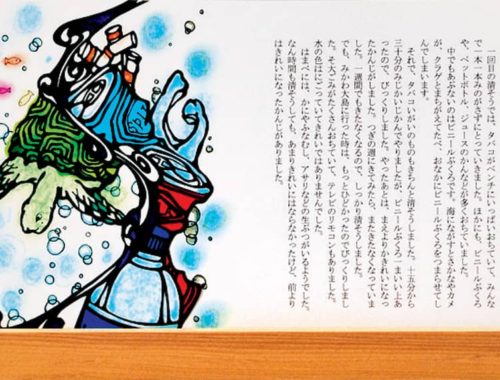 一回目の清そうでは、タバコがベンチにいっぱいおちていて、みんな
で一本一本みのがさずにとっていきました。ほかにも、ビニールぶくろ
や、ペットボトル、ジュースのかんなどが多くおちていました。
中でもあぶないのはビニールぶくろです。海にながすとさかなやカメ
が、クラゲとまちがえてたべ、おなかにビニールぶくろをつまらせてし
んでしまいます。
それで、タバコいがいのものもきちんと清そうしました。十五分から
三十分のみじかいじかんでやりましたが、ビニールぶくろ一まいい上あ
ったので、びっくりしました。やったあとは、まえよりかきれいになっ
たかんじがしました。つぎの週にきてみたら、またきたなくなっていま
した。一週間でもきたなくなるので、しっかり清そうしました。
でも、みかわ大島に行った時は、もっとひどかったのでびっくりしまし
た。そ大ごみがたくさんおちていて、テレビのリモコンもありました。
水の色はにごっていてきれいではありませんでした。
はまべには、かにややどかり、アサリなどの生ぶつがいるようでした。
なん時間も清そうしても、あまりきれいにはならなかったけど、前より
はきれいになったかんじがありました。